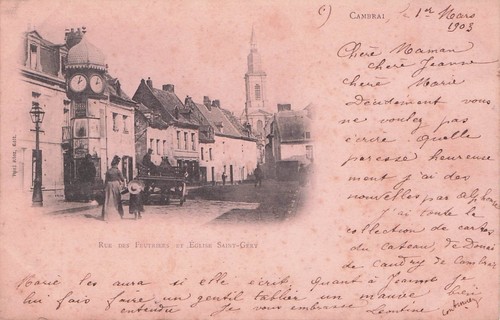 Cambrai
le 1er Mars
1903
Chère Maman
chère Jeanne
chère Marie
Décidement vous
ne voulez pas
écrire. Quelle
paresse heureuse
ment j'ai des
nouvelles par Alphonse
J'ai toute la
collection de cartes
du Cateau, de Douai
de Caudry de Cambrai
Marie les aura si elle écrit. Quant à Jeanne je
lui fais faire un gentil tablier en mauve bien
entendu Je vous embrasse Léontine
Rue des Feutriers et Église Saint-Géry